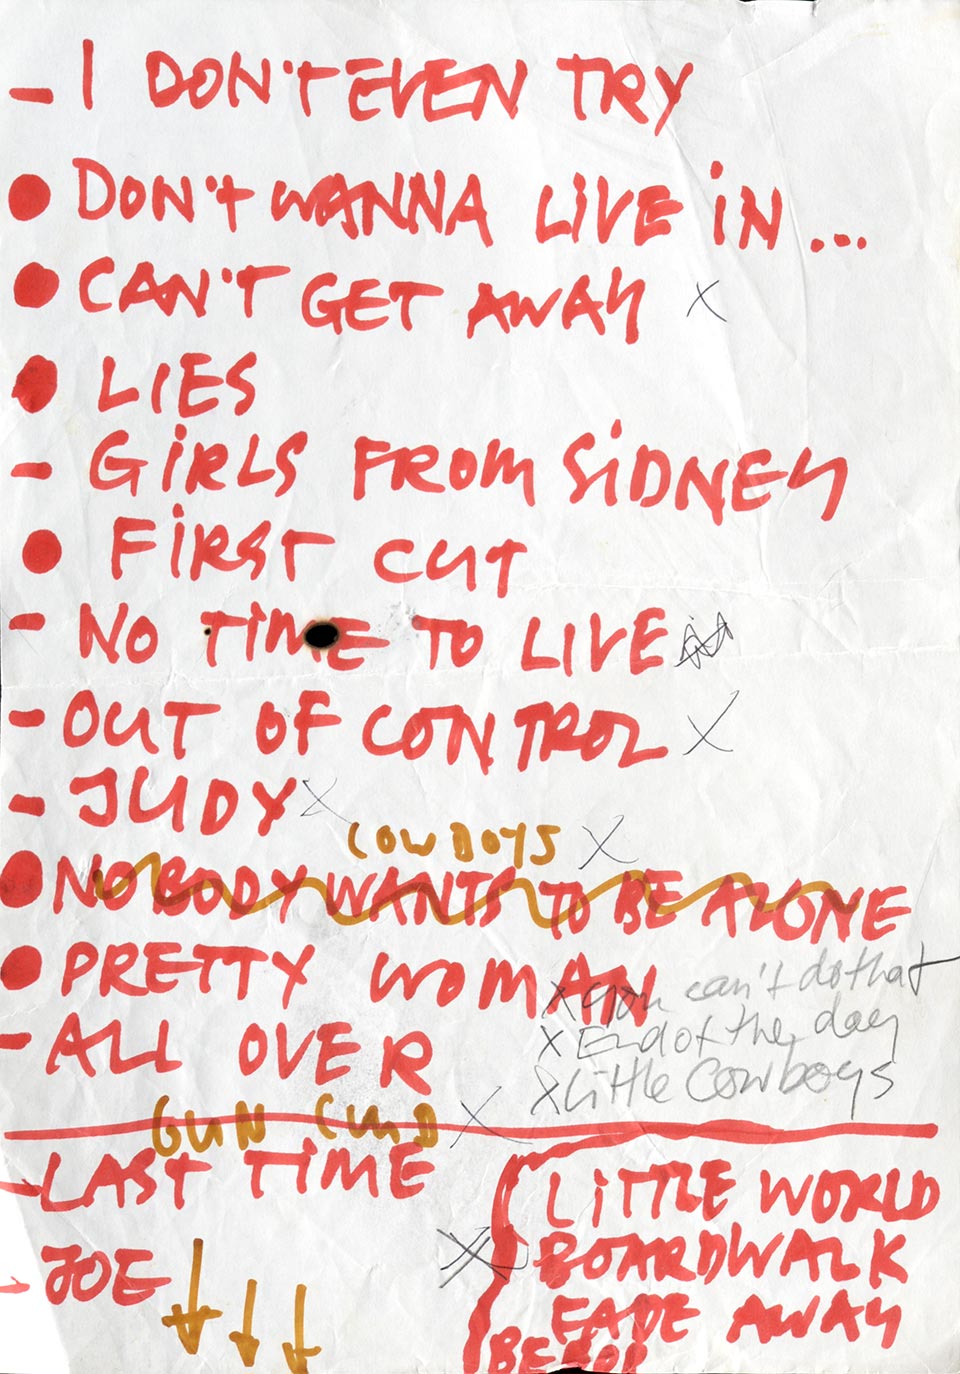 - I DON'T EVEN TRY
● DON'T WANNA LIVE IN...
● CAN'T GET AWAY X
● LIES
- GIRLS FROM SIDNEY
● FIRST CUT
- NO TIME TO LIVE
- OUT OF CONTROL X
- JUDY X
COWBOYS X
● NOBODY WANTS TO BE ALONE
● PRETTY WOMAN
X you can't do that
- ALL OVER
X End of the day
X Little Cowboys
GUN CLUB X
- LAST TIME
- JOE
LITTLE WORLD
X BOARDWALK
FADE AWAY